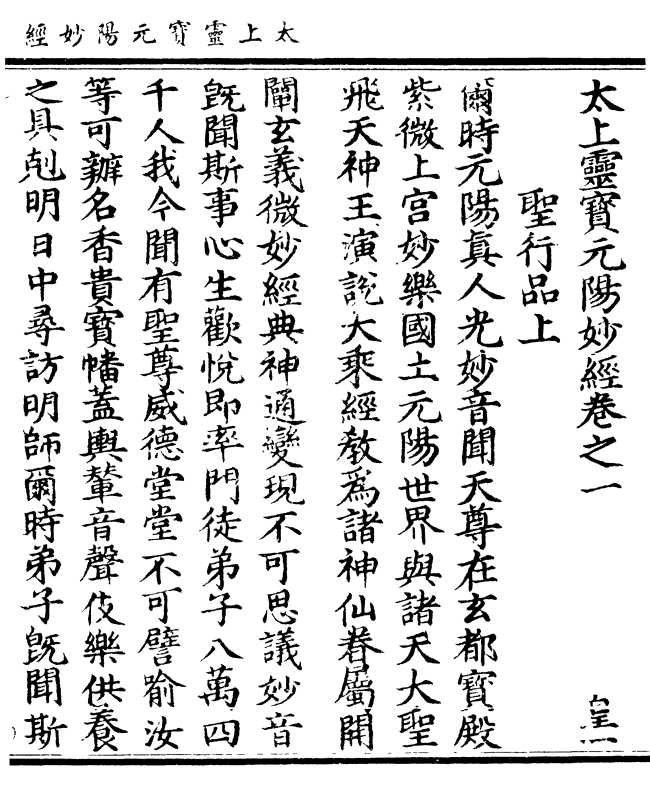 太上靈寶元陽妙經
太上靈寶元陽妙經卷之一
聖行品上
爾時元陽真人光妙音聞天尊在玄都寶殿
紫微上宮妙樂國土元陽世界與諸天大聖
飛天神王演說大乘經教為諸神仙眷屬開
闡玄義微妙經典神通變現不可思議妙音
既聞斯事心生歡悅即率門徒弟子八萬四
千人我今聞有聖尊威德堂堂不可譬喻汝
等可辦名香貴寶幡蓋輿輦音聲伎樂供養
之具剋明日中尋訪明師爾時弟子既聞斯